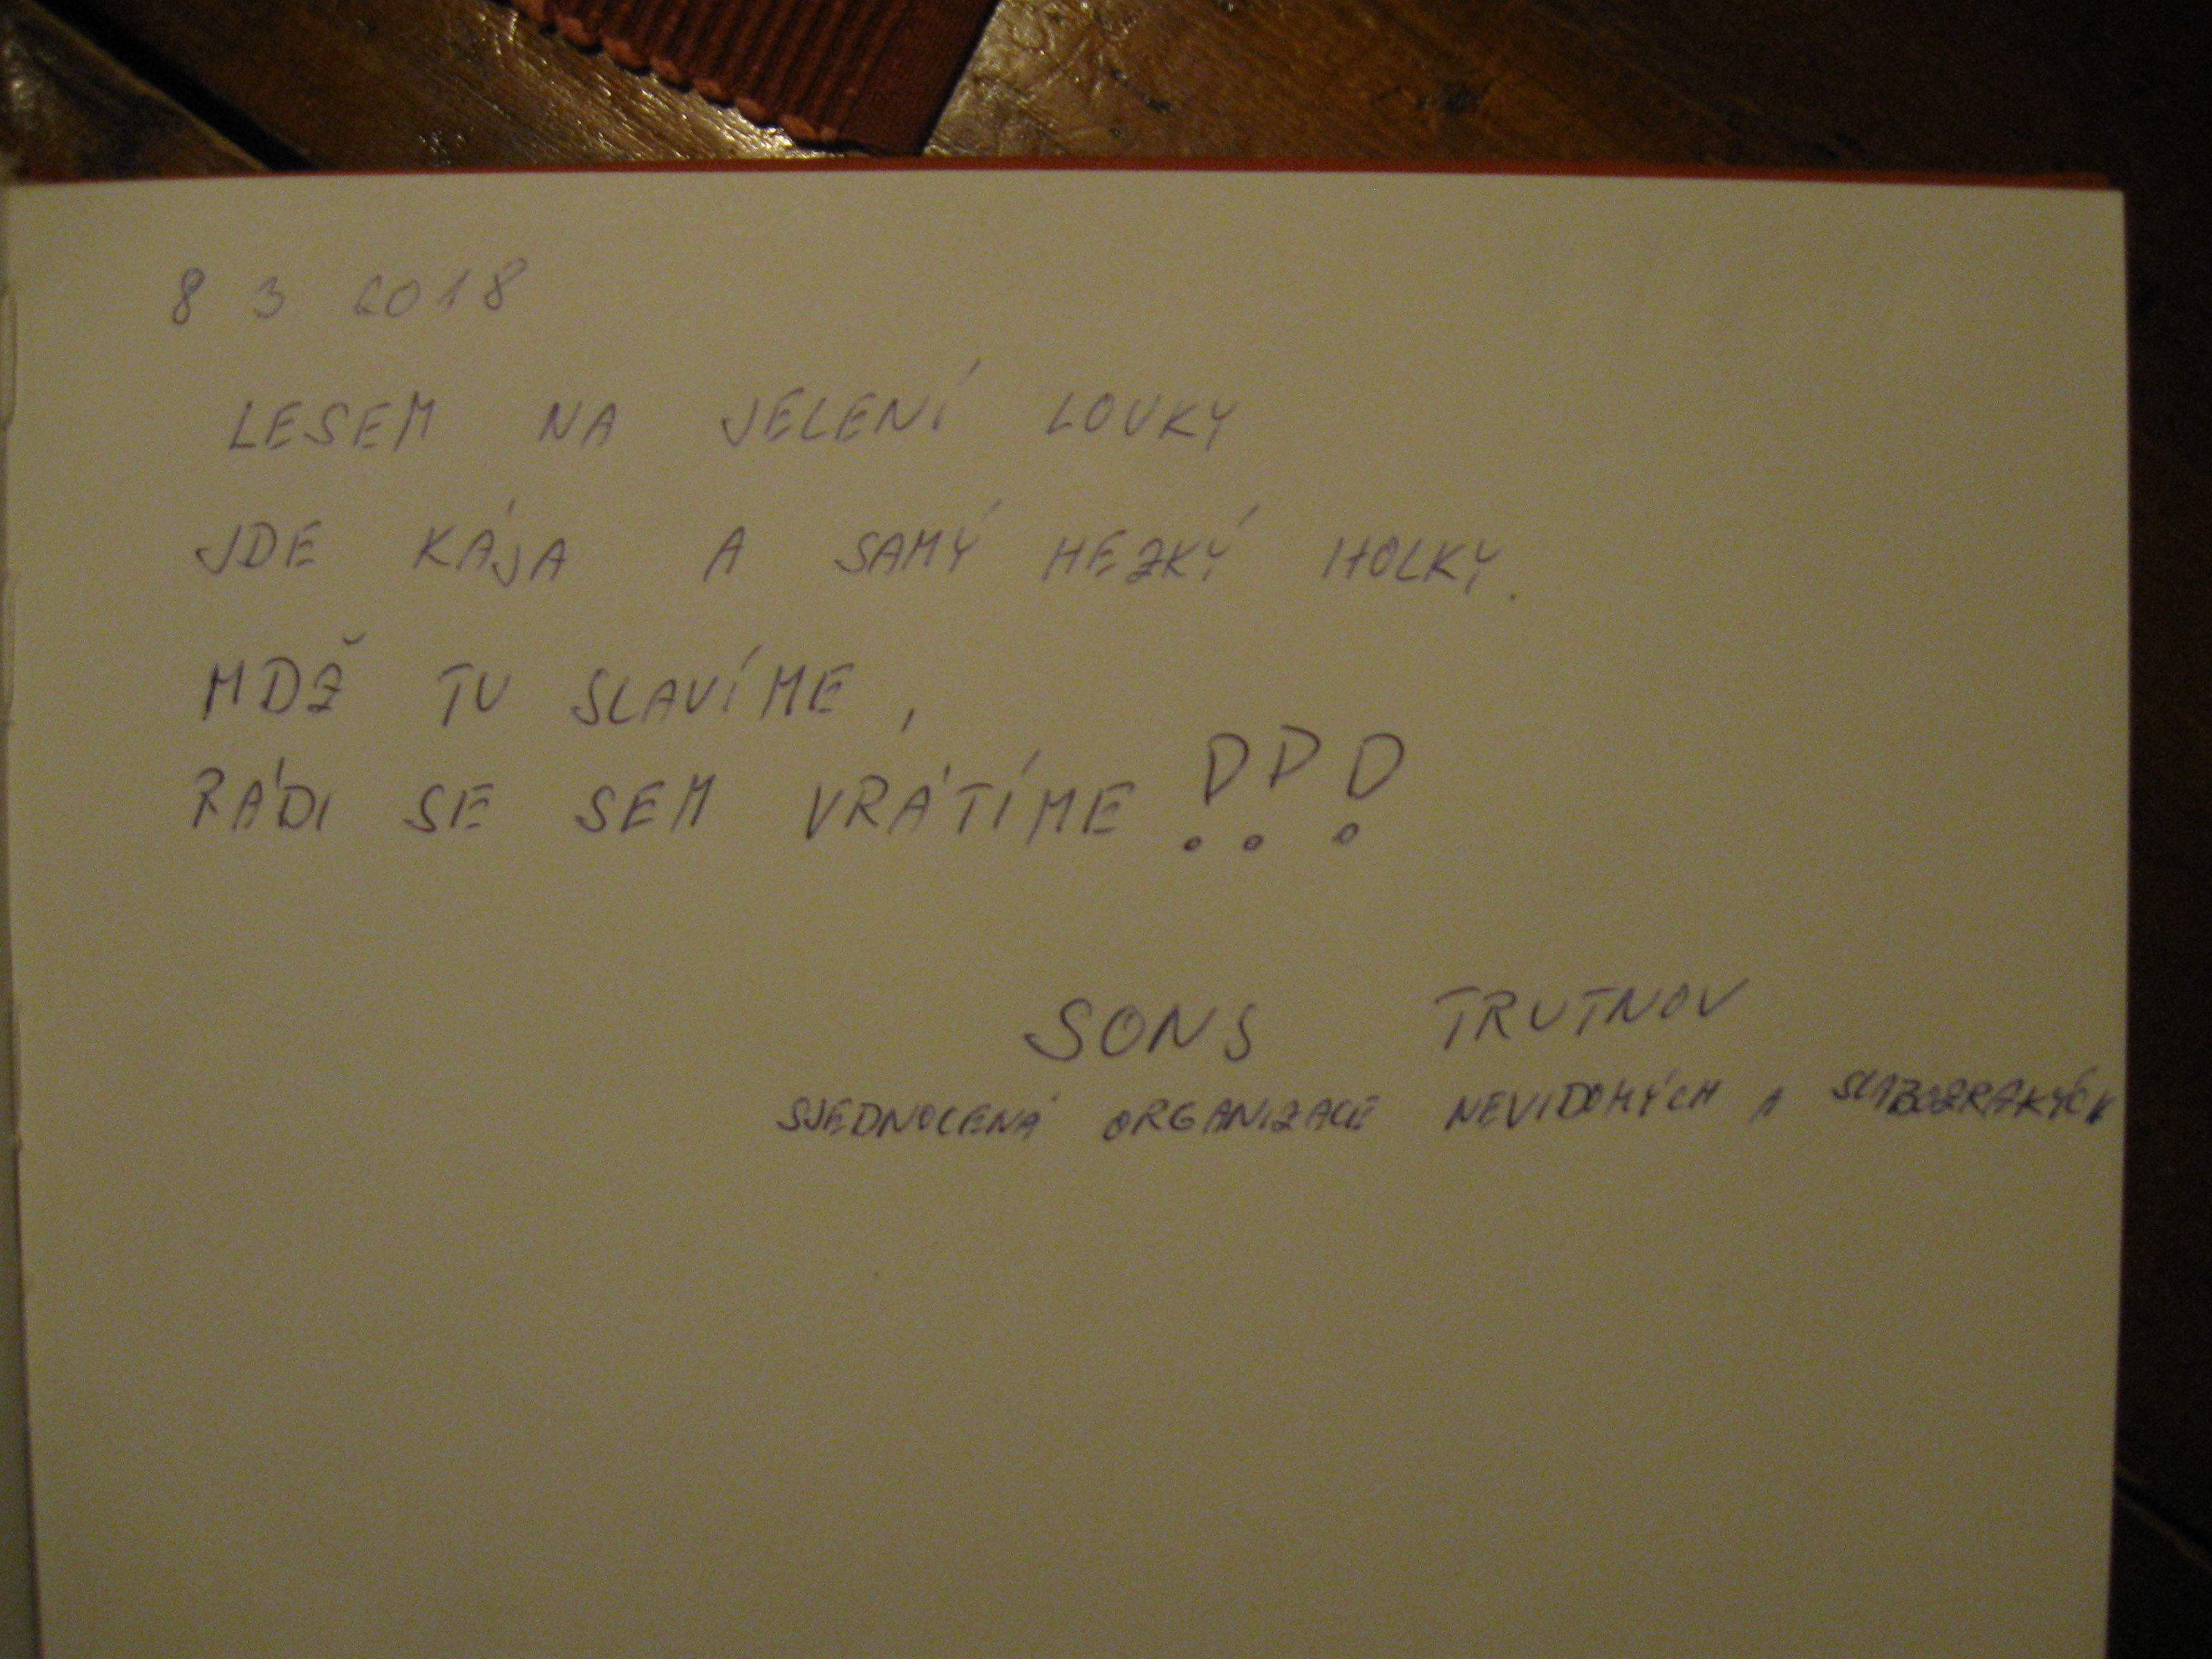 8 3 2018
LESEM NA JELENÍ LOUKY
JDE KÁJA A SAMÝ HEZKÝ HOLKY.
MDŽ TU SLAVÍME,
RÁDI SE SEM VRÁTÍME!!!
SONS TRUTNOV
SJEDNOCENÁ ORGANIZACE NEVIDOMÝCH A SLABOZRAKÝCH